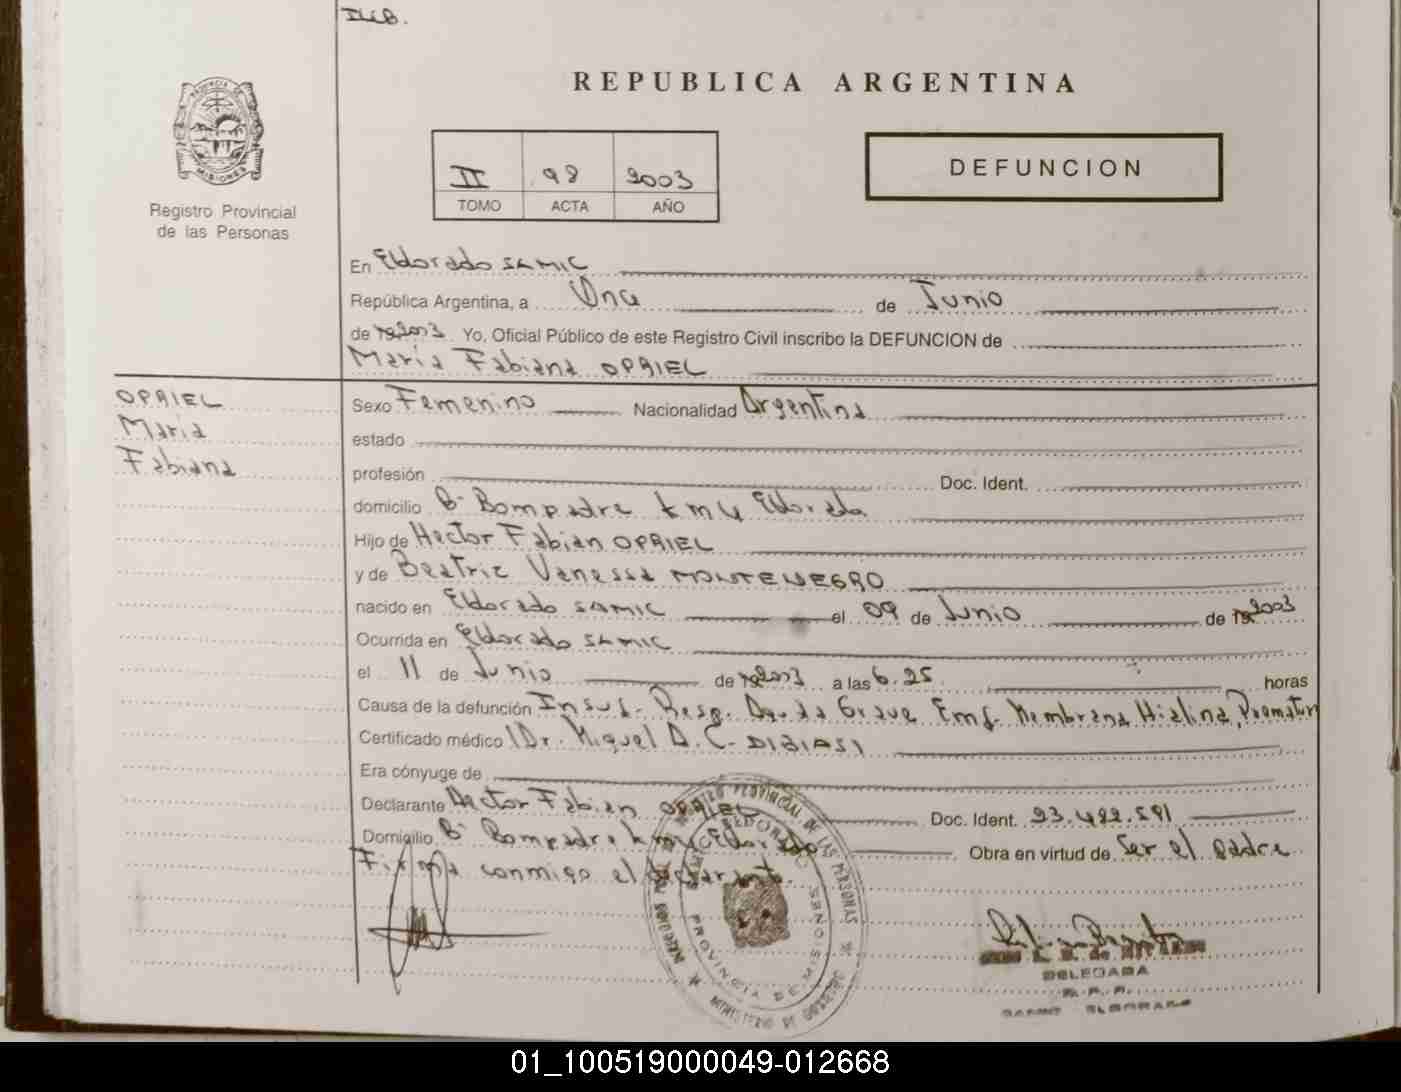 REPUBLICA ARGENTINA
PROVINCIA DE
MISIONES
Registro Provincial
de las Personas
II 98 2003
TOMO ACTA AÑO
DEFUNCION
En Eldorado SAMIC
República Argentina, a Once de Junio
de 2003 Yo, Oficial Público de este Registro Civil inscribo la DEFUNCION de
María Fabiana OPRIEL
OPRIEL
María
Fabiana
Sexo Femenino Nacionalidad Argentina
estado
profesión Doc. Ident.
domicilio Bº Bompadre km 4 Eldorado
Hijo de Hector Fabian OPRIEL
y de Beatriz Vanessa MONTENEGRO
nacido en Eldorado SAMIC el 09 de Junio de 2003
Ocurrida en Eldorado SAMIC
el 11 de Junio de 2003 a las 6.25 horas
Causa de la defunción Insuf. Resp. Aguda Grave Enf. Membrana Hialina, Prematur
Certificado médico Dr. Miguel A. C. DIBIASI
Era cónyuge de
Declarante Hector Fabian OPRIEL Doc. Ident. 23.422.591
Domicilio Bº Bompadre km 4 Eldorado Obra en virtud de Ser el padre
Firma conmigo el declarante.
REGISTRO PROVINCIAL DE LAS PERSONAS
MINISTERIO DE GOBIERNO
PROVINCIA DE MISIONES
DELEGADA
R. P. P.
SAMIC ELDORADO
01_100519000049-012668